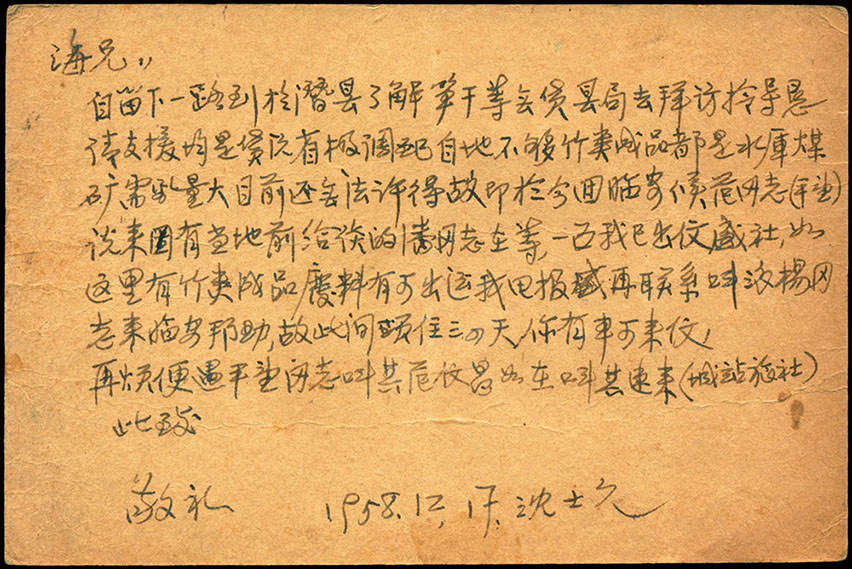 海兄，，
自留下一路到於潜县了解笋干等无货县局去拜访领导恳
请支援均是货况省极调配自地不够竹类成品都是水库煤
矿需要量大目前还无法许得故即於今回临安候范同志(平望)
说来因有当地前给谈的潘同志在等，一西我已出信盛社，如
这里有竹类成品废料有可出运我电报盛再联系叫波杨同
志来临安帮助，故此间 住三四天，你有事可来信，
再烦便遇平望同志叫其范 如在叫其速来(城站旅社)
此致
敬礼 1958.12.17. 沈士